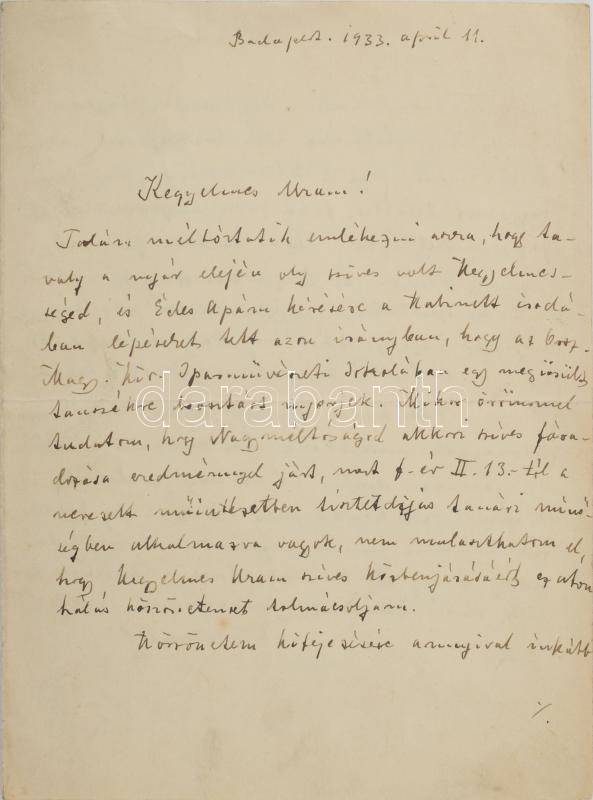 Budapest. 1933. april 11.
Kegyelmes Uram!
Talán méltóztatik emlékezni arra, hogy ta-
valy a nyár elején oly szives volt Kegyelmes-
séged, és Édes Apám kérésére a Kabinett irodá-
ban lépéseket tett azon irányban, hogy az Orsz.
Magy. Kir. Iparművészeti Iskolában egy megüsült
tanszékre beosztást nyerjek. Mikor örömmel
tudatom, hogy Nagyméltóságod akkori szives fára-
dozása eredménnyel járt, mert f. év II. 13.-tól a
nevezett műintézetben tisztetdijas tanári minő-
ségben alkalmazva vagyok, nem mulaszthatom el,
hogy Kegyelmes Uram szives közbenjárásáért ez uton
hálás köszönetemet tolmácsoljam.
Köszönetem kifejezésére annyival inkább
./.
darabanth